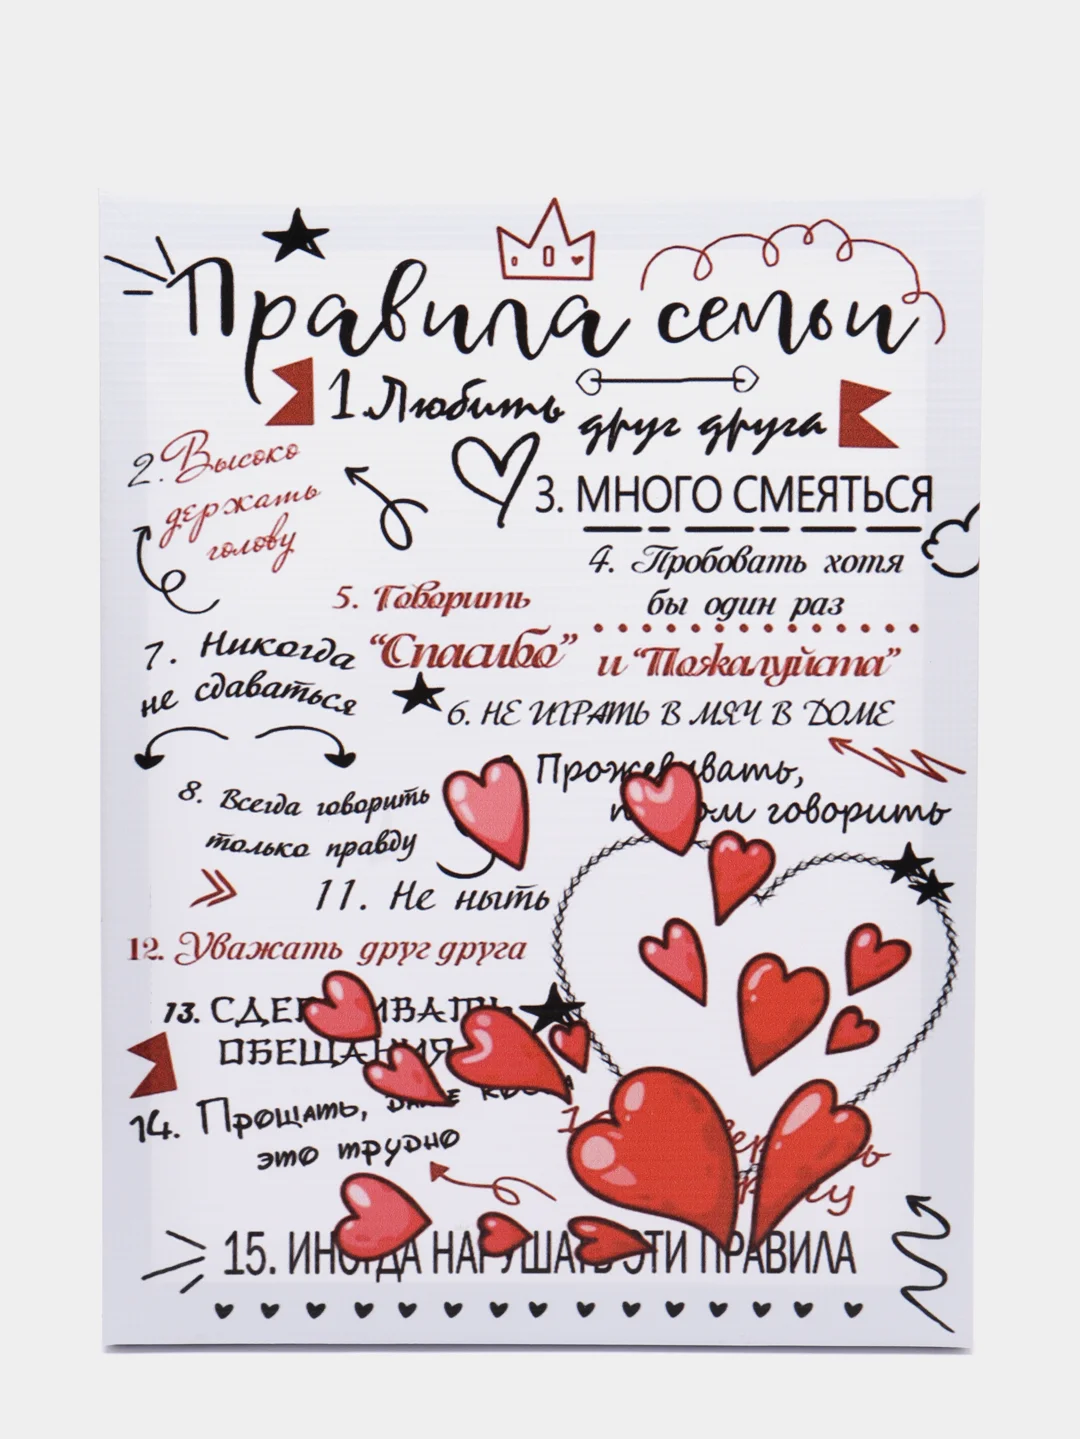 Правила семьи
1. Любить друг друга
2. Высоко
держать
голову
3. МНОГО СМЕЯТЬСЯ
4. Пробовать хотя
бы один раз
5. Говорить
“Спасибо” и “Пожалуйста”
6. НЕ ИГРАТЬ В МЯЧ В ДОМЕ
7. Никогда
не сдаваться
8. Всегда говорить
только правду
Прожевывать,
говорить
11. Не ныть
12. Уважать друг друга
13. СДЕРЖИВАТЬ
ОБЕЩАНИЯ
14. Прощать, даже когда
это трудно
15. ИНОГДА НАРУШАТЬ ЭТИ ПРАВИЛА